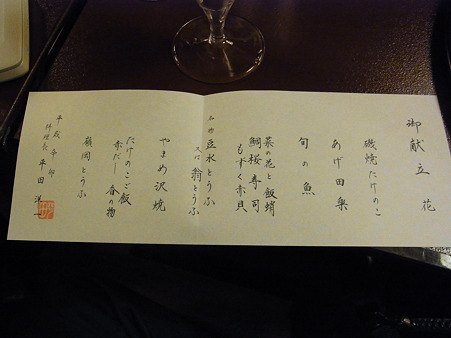 御献立 花
磯焼たけのこ
あげ田楽
旬の魚
菜の花と飯蛸
鯛桜寿司
もずく赤貝
名物 豆水とうふ
又は 翁とうふ
やまめ沢焼
たけのこご飯
赤だし 香の物
嶺岡とうふ
平成 卯
料理長 平田 洋一